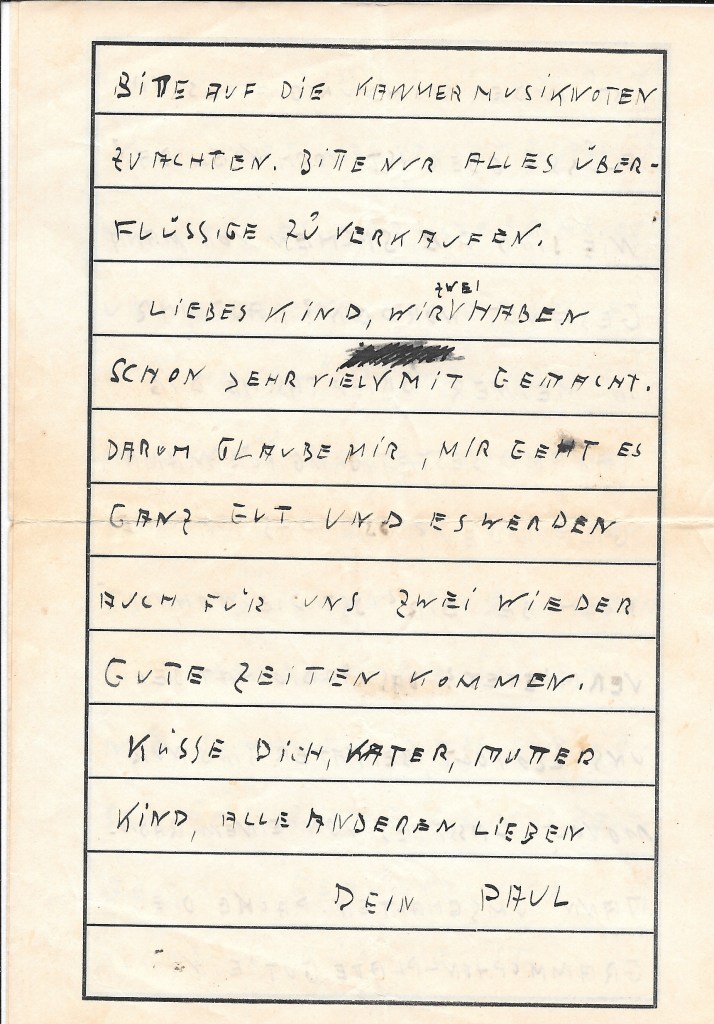 BITTE AUF DIE KAMMERMUSIKNOTEN
ZU ACHTEN. BITTE NUR ALLES ÜBER-
FLÜSSIGE ZU VERKAUFEN.
LIEBES KIND, WIR ZWEI HABEN
SCHON SEHR VIEL MIT GEMACHT.
DARUM GLAUBE MIR, MIR GEHT ES
GANZ GUT UND ES WERDEN
AUCH FÜR UNS ZWEI WIEDER
GUTE ZEITEN KOMMEN.
KÜSSE DICH, KATER, MUTTER
KIND, ALLE ANDEREN LIEBEN
DEIN PAUL